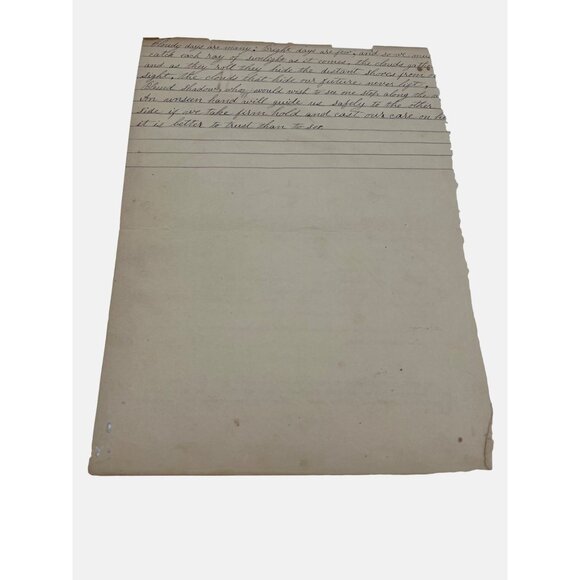 Cloudy days are many. Bright days are few. and so we mus
catch each ray of sunlight as it comes. the clouds gath
and as they roll they hide the distant shores from
sight. the clouds that hide our future never lift.
shadow, who would wish to see one step along the
An unseen hand will guide us safely to the other
side if we take firm hold and cast our care on
it is better to trust than to see